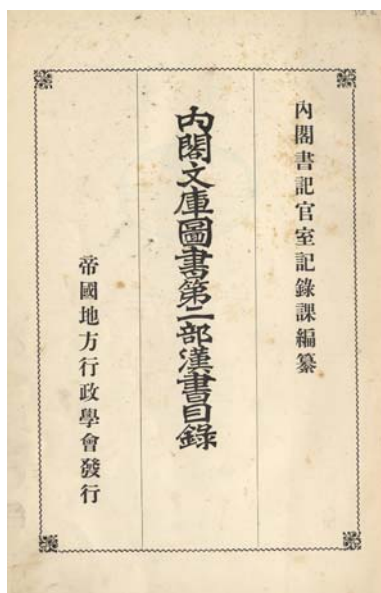 內閣書記官室記錄課編纂
內閣文庫圖書第二部漢書目錄
帝國地方行政學會發行